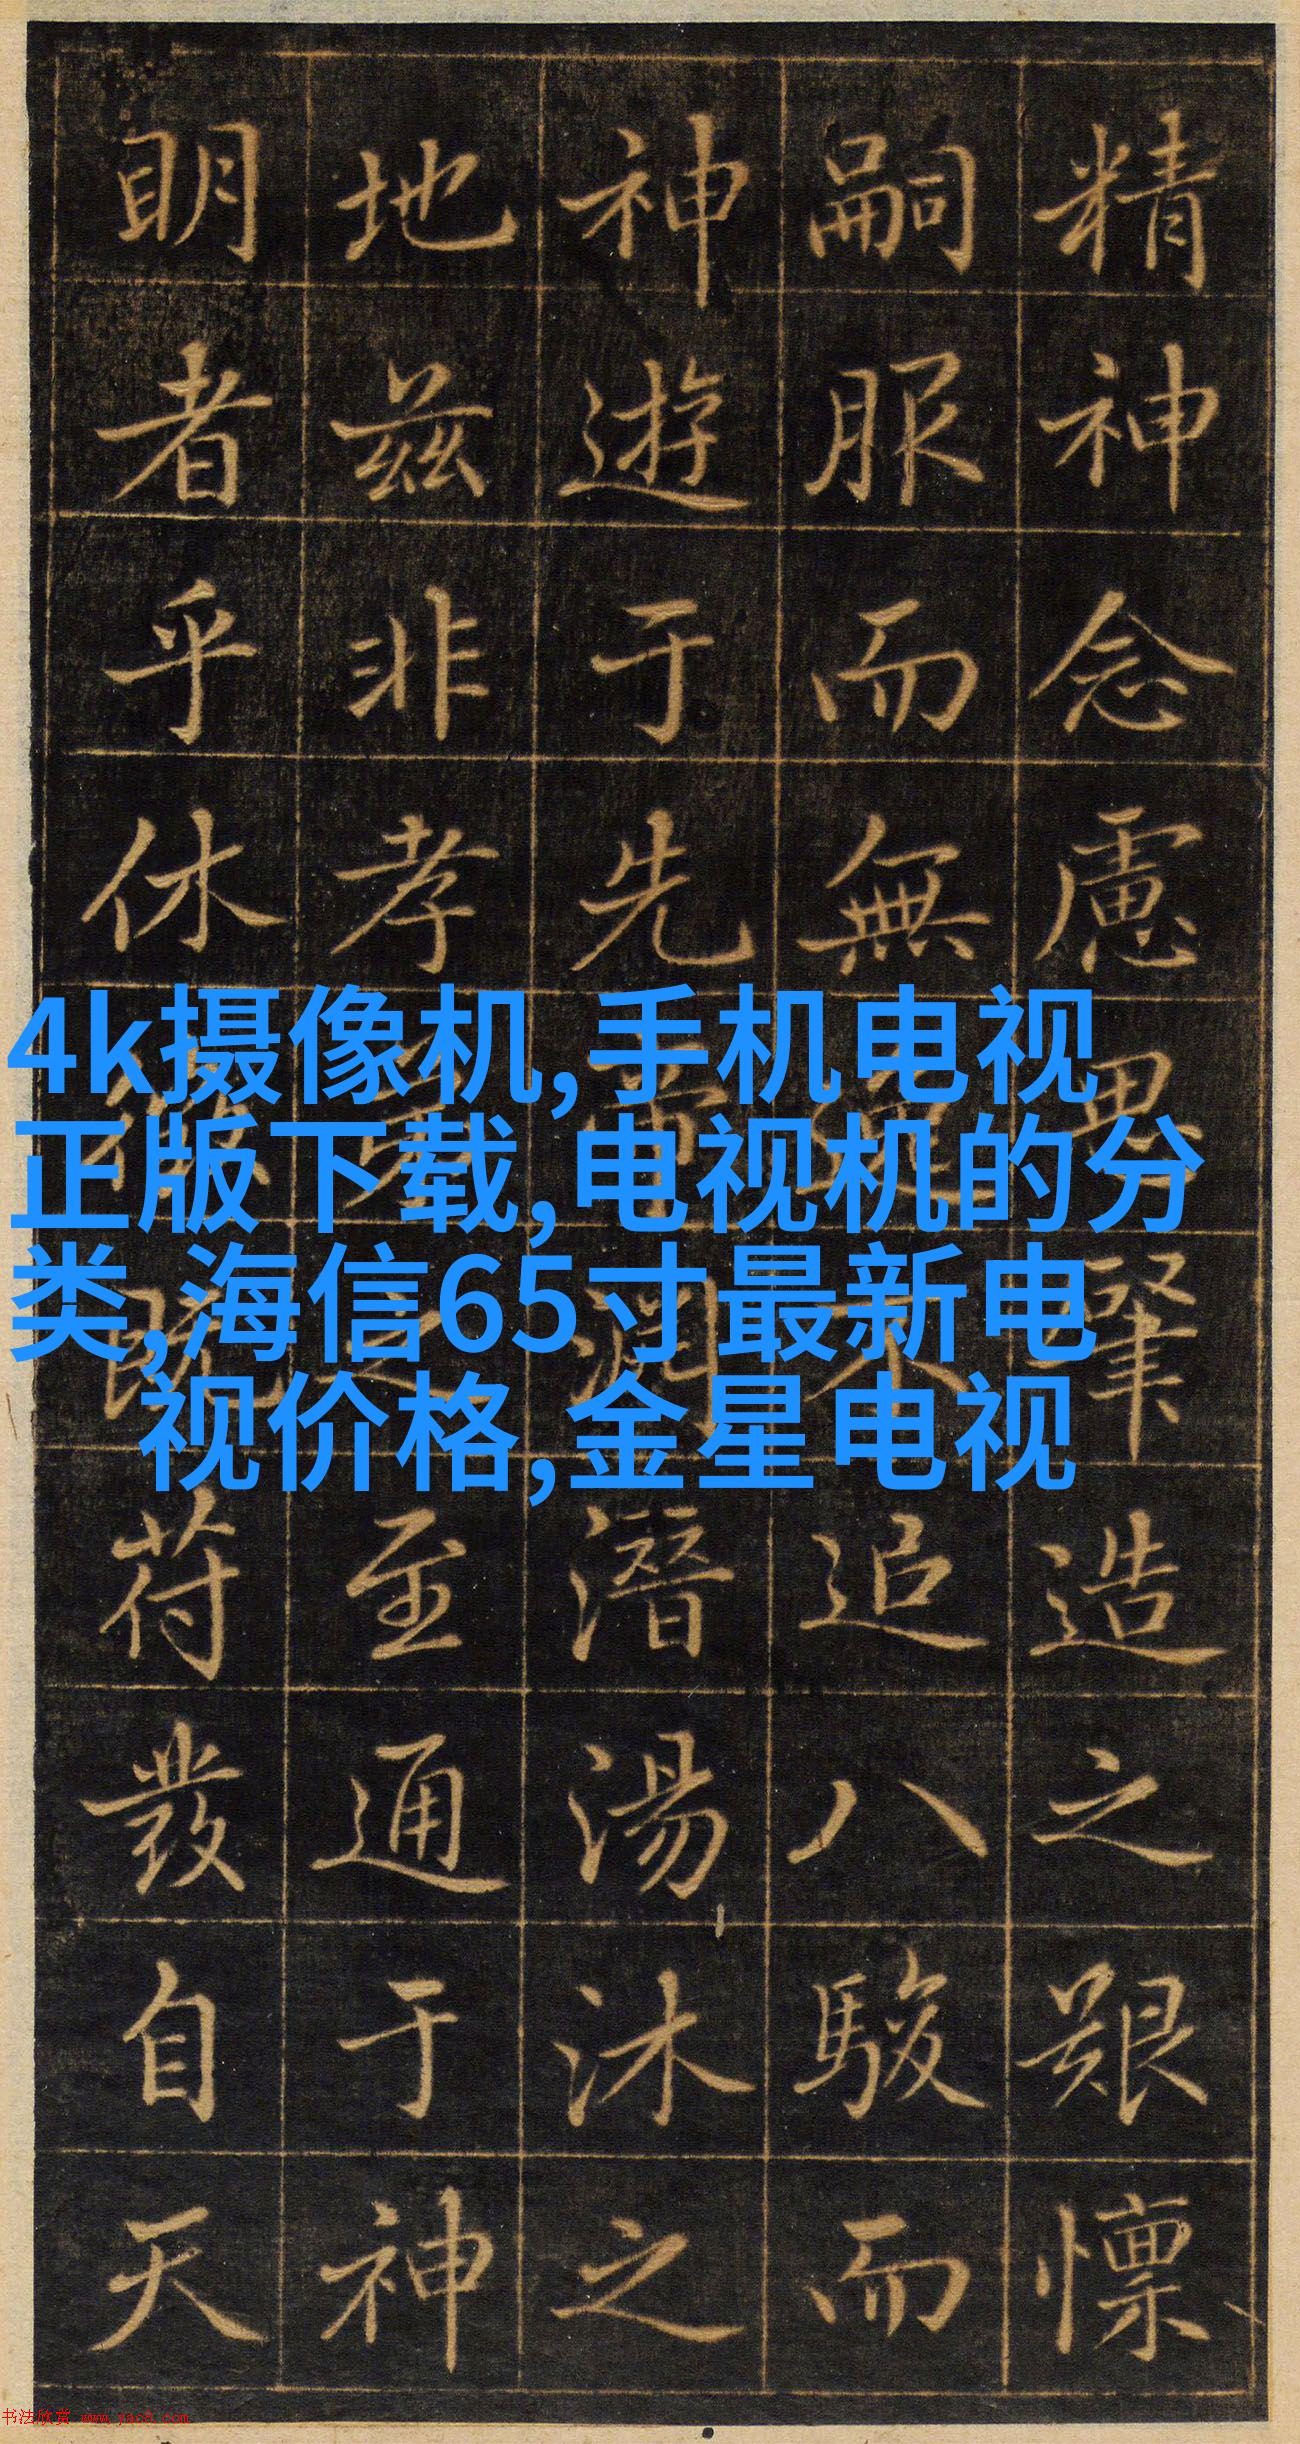 精神念慮思肇造之艱懍
嗣服而無不追八駿而
神遊于先帝潤潛湯沐之
地兹非孝之至通于神
眀者乎休既符發自天
4k摄像机,手机电视
正版下载,电视机的分
类,海信65寸最新电
视价格,金星电视
书法欣赏 www.yac8.com